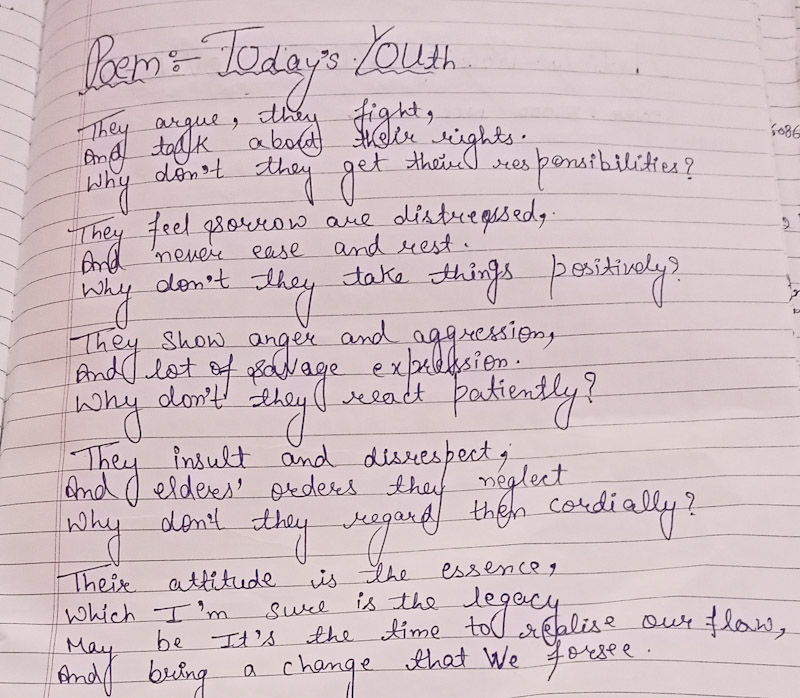 Poem:- Today's Youth
They argue, they fight,
And talk about their rights.
Why don't they get their responsibilities?
They feel sorrow are distressed,
And never ease and rest.
Why don't they take things positively?
They show anger and aggression,
And lot of savage expression.
Why don't they react patiently?
They insult and disrespect,
And elders' orders they neglect
Why don't they regard them cordially?
Their attitude is the essence,
Which I'm sure is the legacy
May be It's the time to realise our flaw,
And bring a change that We forsee.